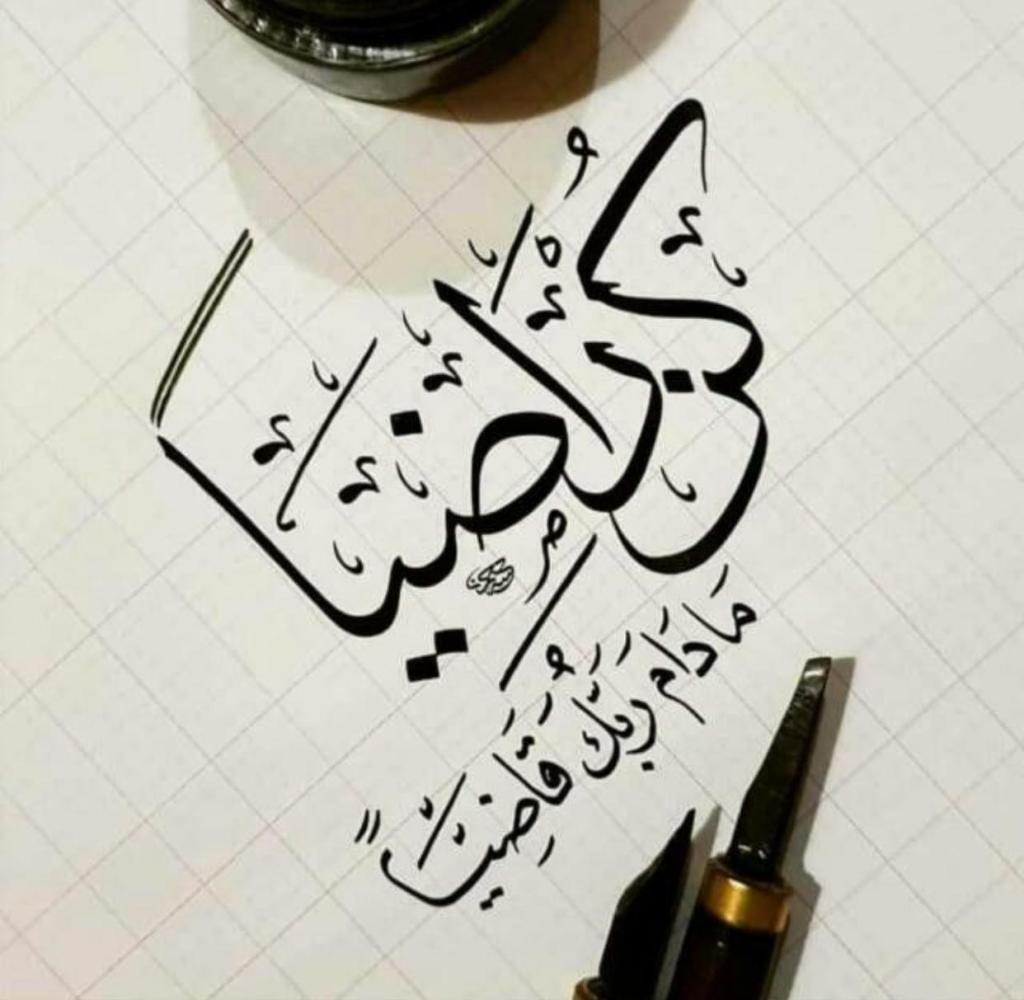 كُنْ رَاضِيًا
مَا دَامَ رَبُّكَ قَاضِيًا